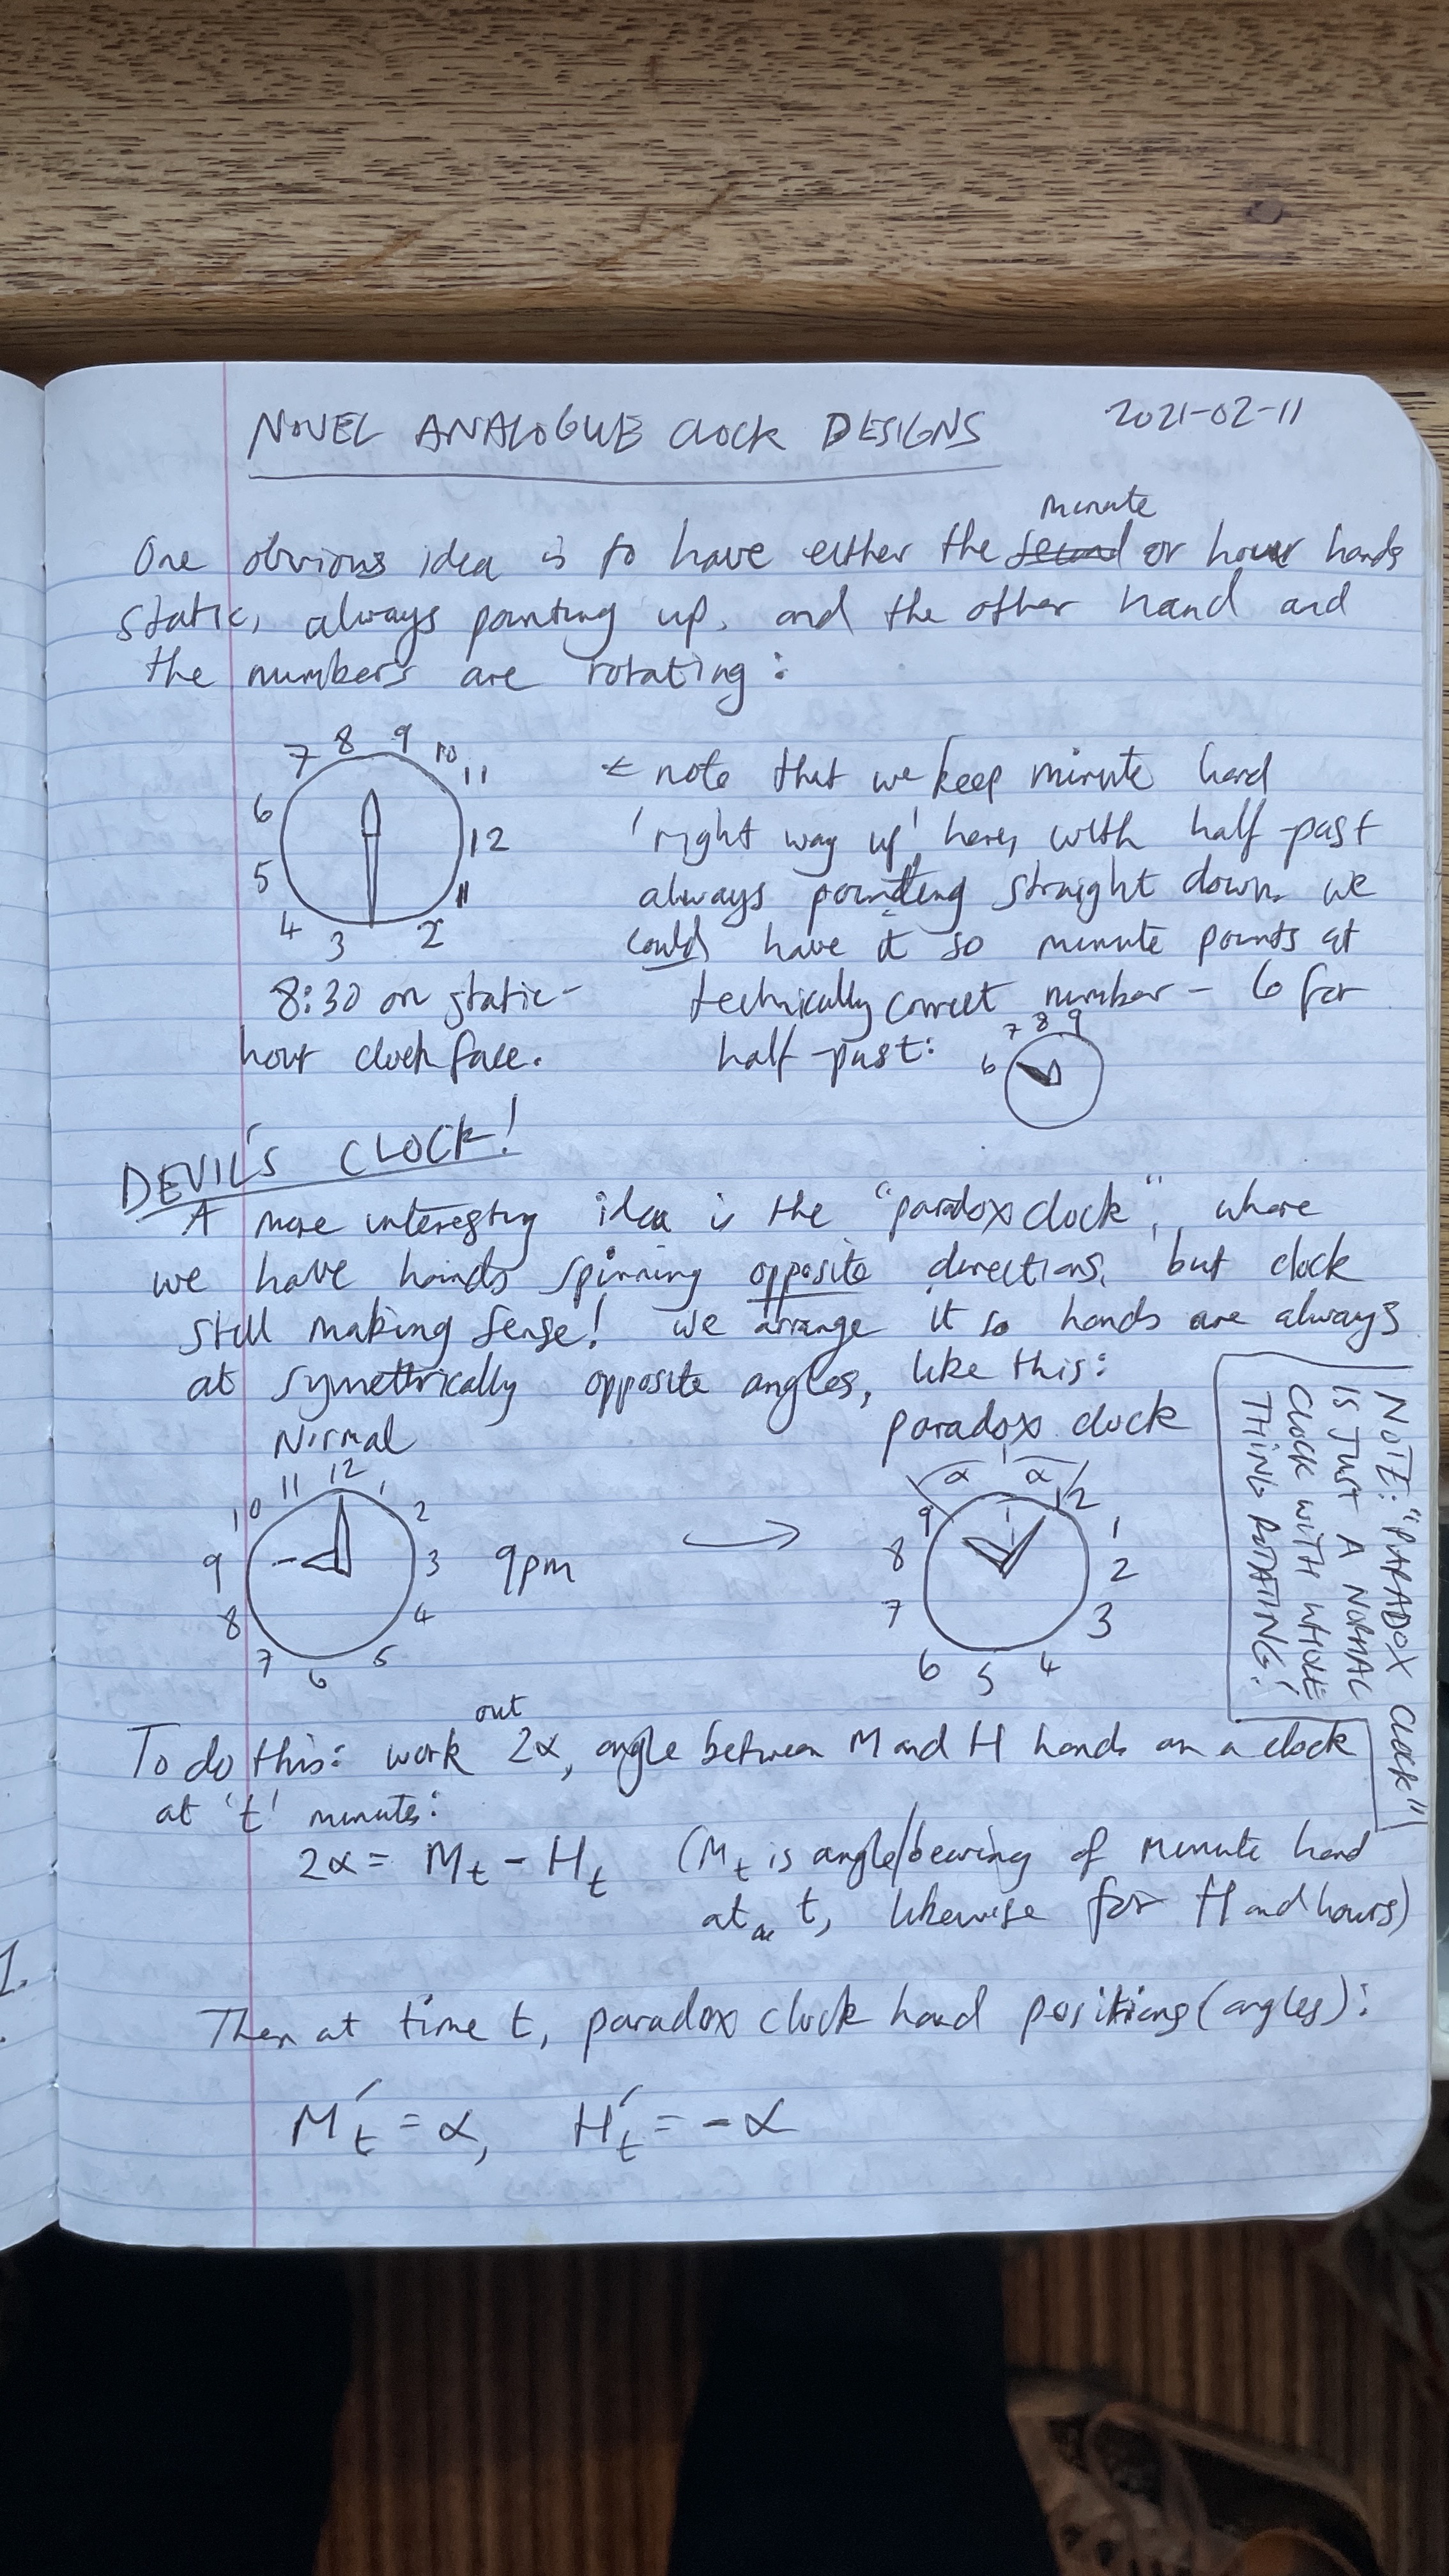 NOVEL ANALOGUE CLOCK DESIGNS 2021-02-11
minute
One obvious idea is to have either the second or hour hands
static, always pointing up, and the other hand and
the numbers are rotating:
7 8 9 10 11
6 12
5 11
4 3 2
← note that we keep minute hand
'right way up' here, with half-past
always pointing straight down. we
could have it so minute points at
technically correct number - 6 for
half-past:
8:30 on static-
hour clock face.
6 7 8 9
DEVIL'S CLOCK!
A more interesting idea is the "paradox clock", where
we have hands spinning opposite directions, but clock
still making sense! we arrange it so hands are always
at symettrically opposite angles, like this:
Normal
12 1 2 3 4 5 6 7 8 9 10 11
9pm
paradox clock
α α
9 12
8 1
7 2
6 5 4 3
NOTE: "PARADOX CLOCK"
IS JUST A NORMAL
CLOCK WITH WHOLE
THING ROTATING!
out
To do this: work 2α, angle between M and H hands on a clock
at 't' minutes:
2α = Mt - Ht (Mt is angle/bearing of minute hand
at t, likewise for H and hours)
Then at time t, paradox clock hand positions (angles):
M't = α, H't = -α
1.